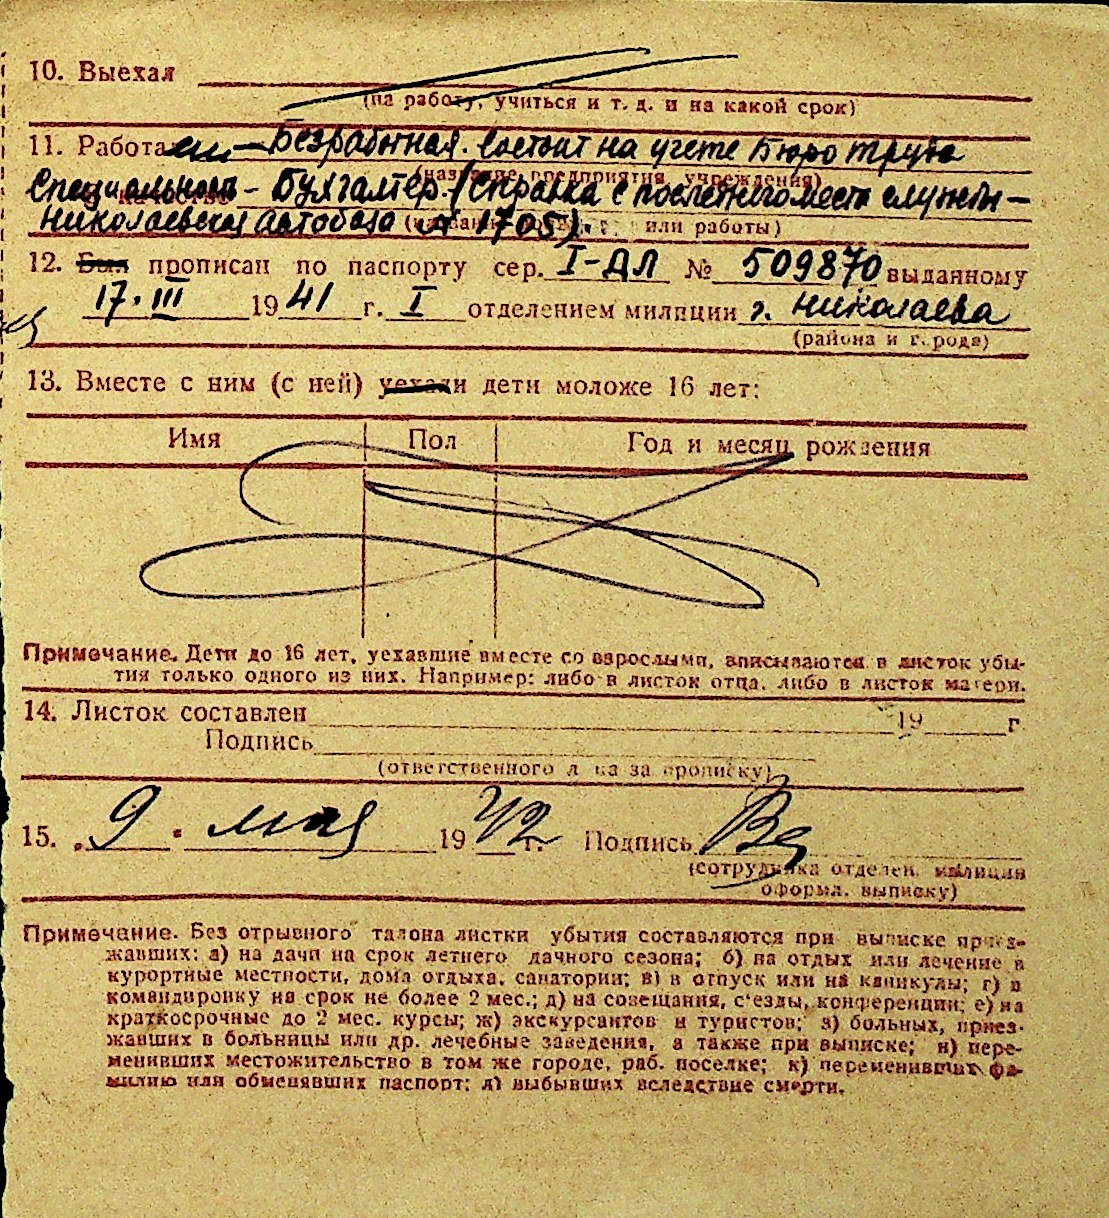 10. Выехал
(на работу, учиться и т. д. и на какой срок)
11. Работа — Безработная. Состоит на учете Бюро труда
(название предприятия, учреждения)
Специальность – Бухгалтер. (Справка с последнего места службы –
Николаевская Автобаза А 1705).
или работы)
12. Был прописан по паспорту сер. I-ДЛ № 509870 выданному
17. III 1941 г. I отделением милиции г. Николаева
(района и города)
13. Вместе с ним (с ней) уехали дети моложе 16 лет:
Имя Пол Год и месяц рождения
Примечание. Дети до 16 лет, уехавшие вместе со взрослыми, вписываются в листок убы-
тия только одного из них. Например: либо в листок отца, либо в листок матери.
14. Листок составлен 19 г
Подпись
(ответственного лица за прописку)
15. 9 мая 1942 г. Подпись
(сотрудника отделен. милиции
оформл. выписку)
Примечание. Без отрывного талона листки убытия составляются при выписке приез-
жавших: а) на дачи на срок летнего дачного сезона; б) на отдых или лечение в
курортные местности, дома отдыха, санатории; в) в отпуск или на каникулы; г) в
командировку на срок не более 2 мес.; д) на совещания, с'езды, конференции; е) на
краткосрочные до 2 мес. курсы; ж) экскурсантов и туристов; з) больных, приез-
жавших в больницы или др. лечебные заведения, а также при выписке; и) пере-
менивших местожительство в том же городе, раб. поселке; к) переменивших фа-
милию или обменявших паспорт; л) выбывших вследствие смерти.